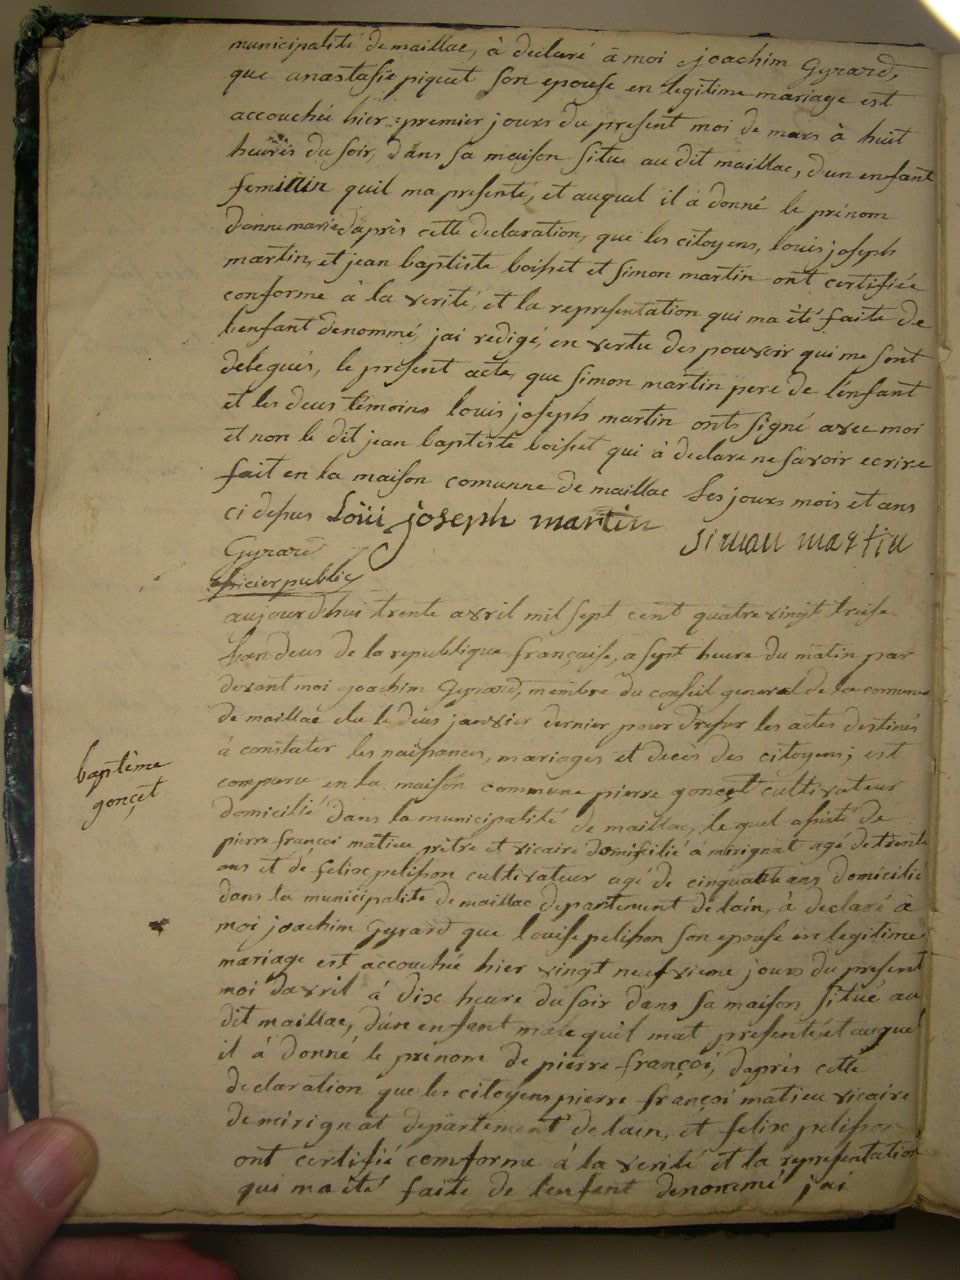 municipalité de maillac, à declaré à moi joachim Gyrard,
que anastasie piquet son epouse en legitime mariage est
accouchée hier premier jours du present moi de mars à huit
heures du soir, dans sa maison situé au dit maillac, d'un enfant
feminin quil ma presenté, et auquel il à donné le prénom
danne marie daprès cette declaration, que les citoyens, louis joseph
martin, et jean baptiste boisset et simon martin ont certifiée
conforme à la verité, et la representation qui ma été faite de
l'enfant denommé, jai redigé, en vertu des pouvoir qui me sont
delegués, le présent acte, que simon martin pere de l'énfant
et les deus témoins louis joseph martin ont signé avec moi
et non le dit jean baptiste boisset qui à declare ne savoir ecrire
fait en la maison comunne de maillac les jours mois et ans
ci desus Loüi joseph martin simon martin
Gyrard
oficier public
aujourdhui trente avril mil sept cent quatre vingt treise
Lan deus de la republique française, a sept heure du matin par
devant moi joachim Gyrard, membre du conseil general de la commune
de maillac élu le deus janvier dernier pour dresser les actes destinés
à constater les naissances, mariages et decès des citoyens; est
comparu en la maison commune pierre gonçet cultivateur
domicilié dans la municipalité de maillac, le quel assisté de
pierre françoi matieu prêtre et vicaire domicilié a mirignat agé de trente
ans et de felixe pelisson cultivateur agé de cinquante ans domicilié
dans la municipalité de maillac departement de lain, à declaré à
moi joachim Gyrard que louise pelisson son epouse en legitime
mariage est accouchée hier vingt neufvieme jours du present
moi davril à dix heure du soir dans sa maison situé au
dit maillac, dun enfant male quil mat presenté et auquel
il à donné le prénom de pierre françoi, daprès cette
declaration que les citoyens pierre françoi matieu vicaire
de mirignat departement de lain, et felixe pelisson
ont certifié comforme à la verité et la representation
qui ma été faite de l'enfant denommé jai
baptême
gonçet